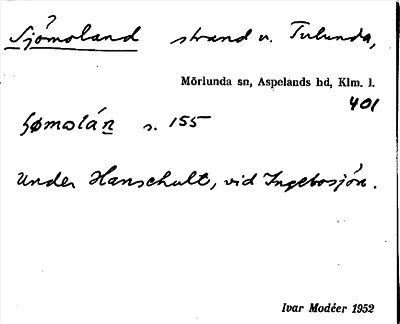 Sjömoland strand v. Tulunda,
Mörlunda sn, Aspelands hd, Klm. l.
401
s. 155
Under Hanshult, vid Ingebosjön.
Ivar Modéer 1952